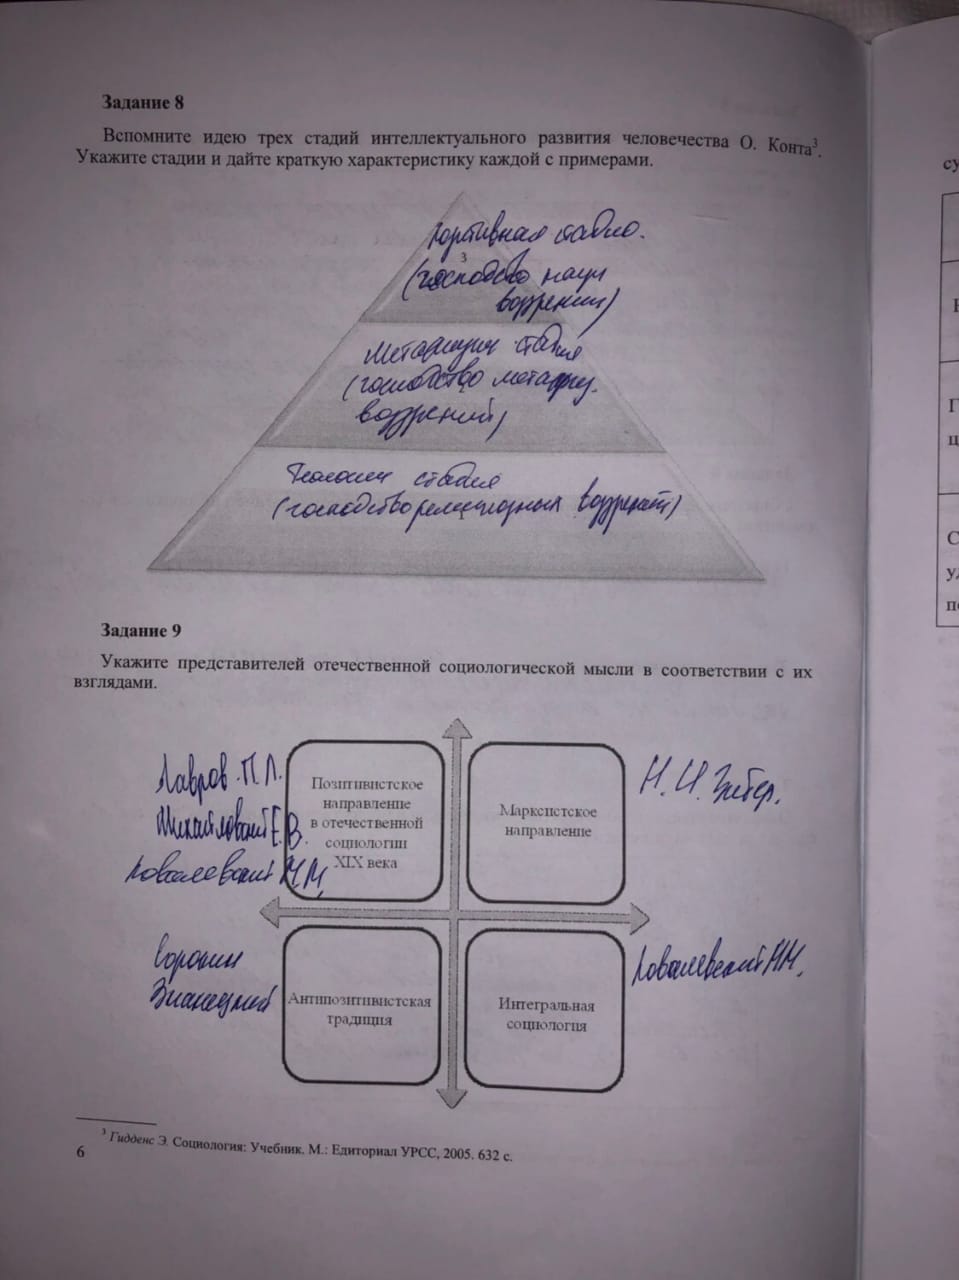 Задание 8
Вспомните идею трех стадий интеллектуального развития человечества О. Конта³.
Укажите стадии и дайте краткую характеристику каждой с примерами.
стадия.
3
(господство науч
воззрений)
Метафизич стадия
(господство метафиз.
воззрений)
Теологич стадия
(господство религиозных воззрений)
Задание 9
Укажите представителей отечественной социологической мысли в соответствии с их
взглядами.
Лавров П. Л.
Михайловский Е. В.
Ковалевский М М
Позитивистское
направление
в отечественной
социологии
XIX века
Марксистское
направление
Н. И. Зибер.
Сорокин
Знанецкий
Антипозитивистская
традиция
Интегральная
социология
Ковалевский М М.
³ Гидденс Э. Социология: Учебник. М.: Едиториал УРСС, 2005. 632 с.
6
су
Г
ц
С
ул
по